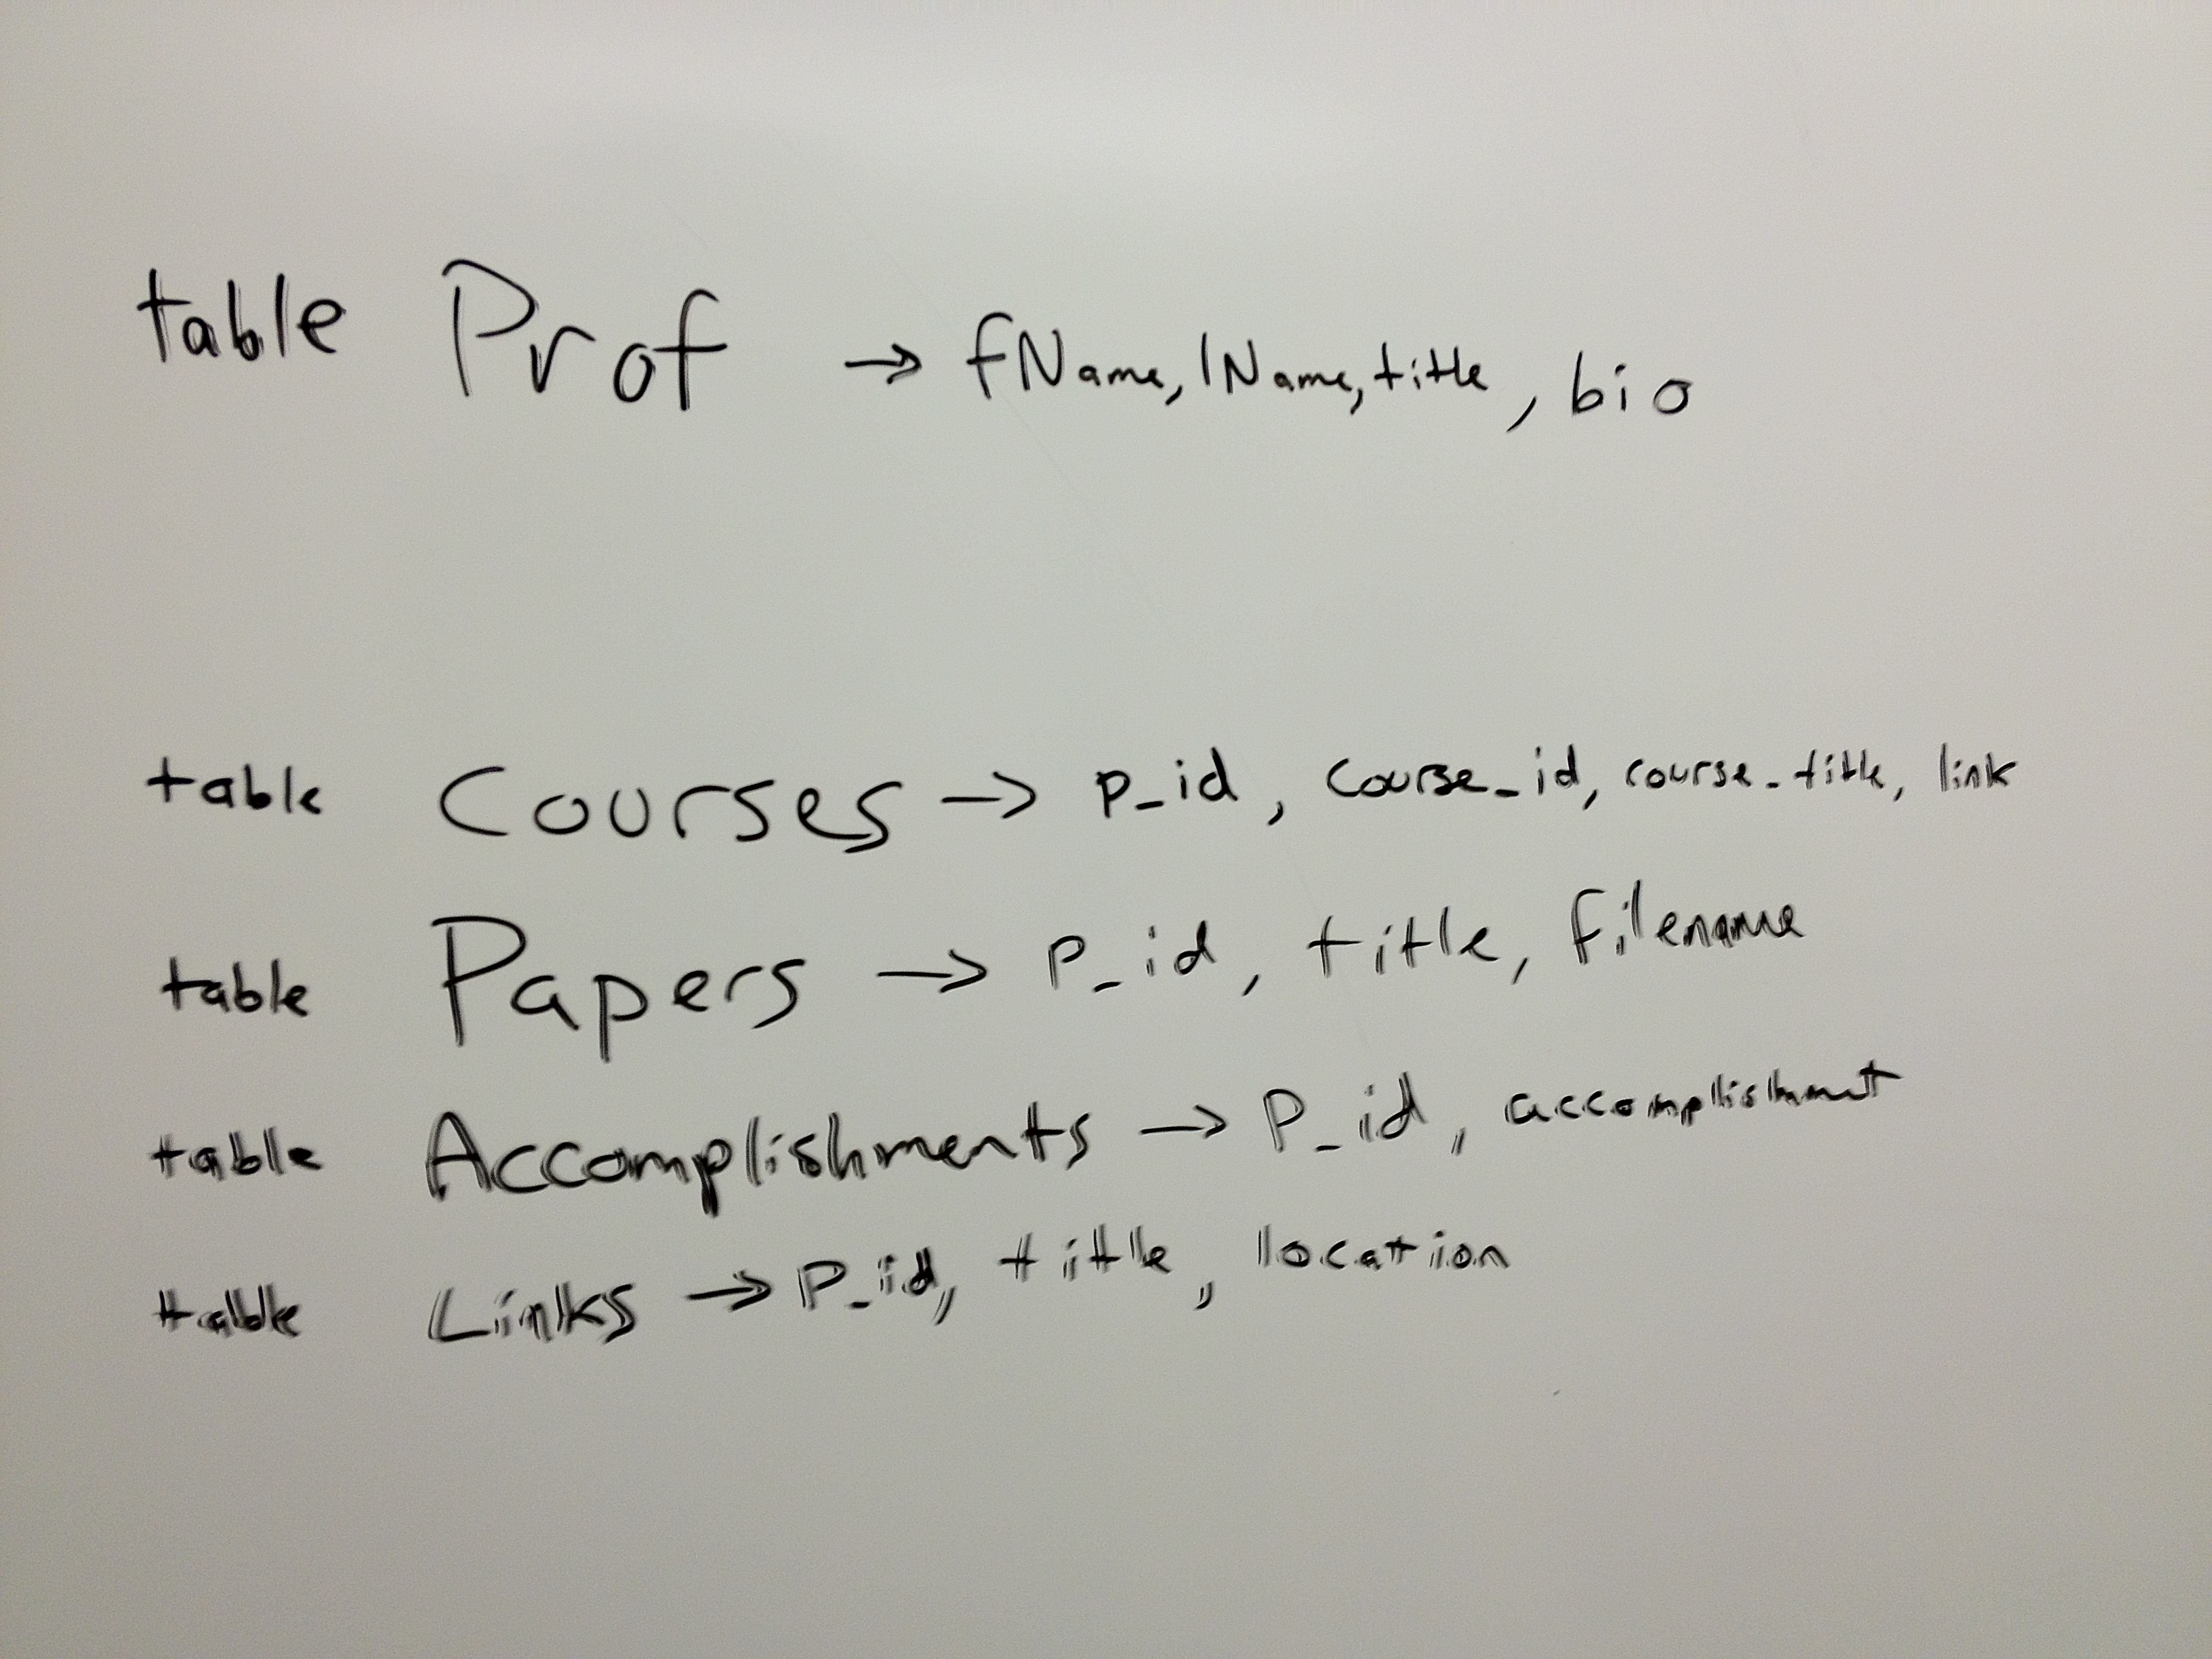 table Prof → fName, lName, title, bio
table Courses → p_id, course_id, course_title, link
table Papers → p_id, title, filename
table Accomplishments → p_id, accomplishment
table Links → p_id, title, location